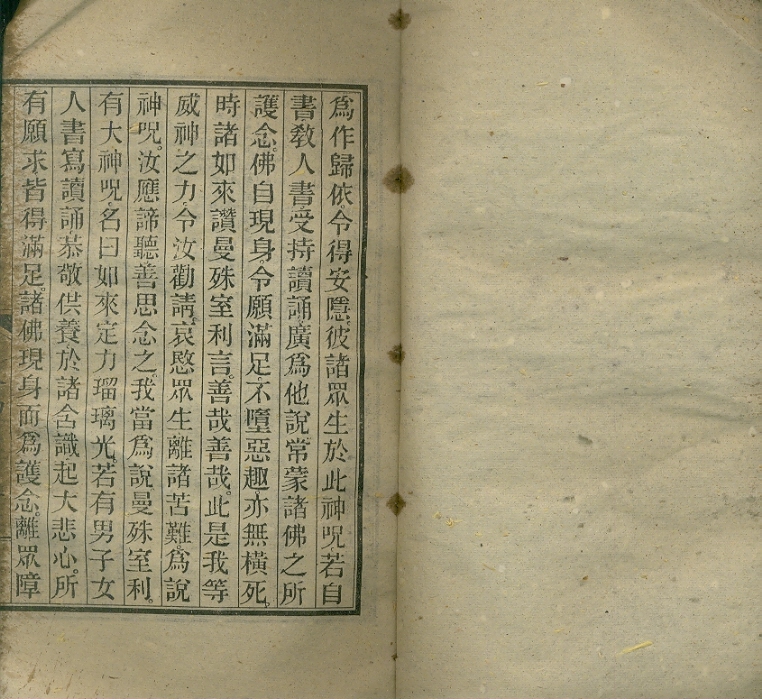 爲作歸依。令得安隱。彼諸眾生於此神呪。若自
書教人書。受持讀誦。廣爲他說。常蒙諸佛之所
護念。佛自現身。令願滿足。不墮惡趣。亦無橫死。
時諸如來讚曼殊室利言。善哉善哉。此是我等
威神之力。令汝勸請。哀愍眾生離諸苦難。爲說
神呪。汝應諦聽善思念之。我當爲說曼殊室利。
有大神呪。名曰如來定力瑠璃光。若有男子女
人書寫讀誦。恭敬供養。於諸含識起大悲心。所
有願求皆得滿足。諸佛現身而爲護念。離眾障